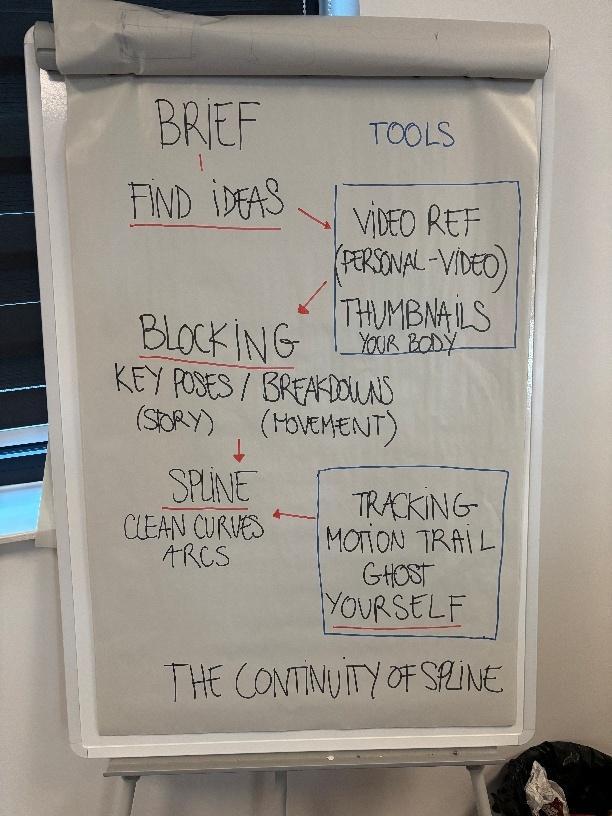 BRIEF
TOOLS
FIND IDEAS
VIDEO REF
(PERSONAL-VIDEO)
THUMBNAILS
YOUR BODY
BLOCKING
KEY POSES / BREAKDOWNS
(STORY) (MOVEMENT)
SPLINE
CLEAN CURVES
ARCS
TRACKING
MOTION TRAIL
GHOST
YOURSELF
THE CONTINUITY OF SPLINE